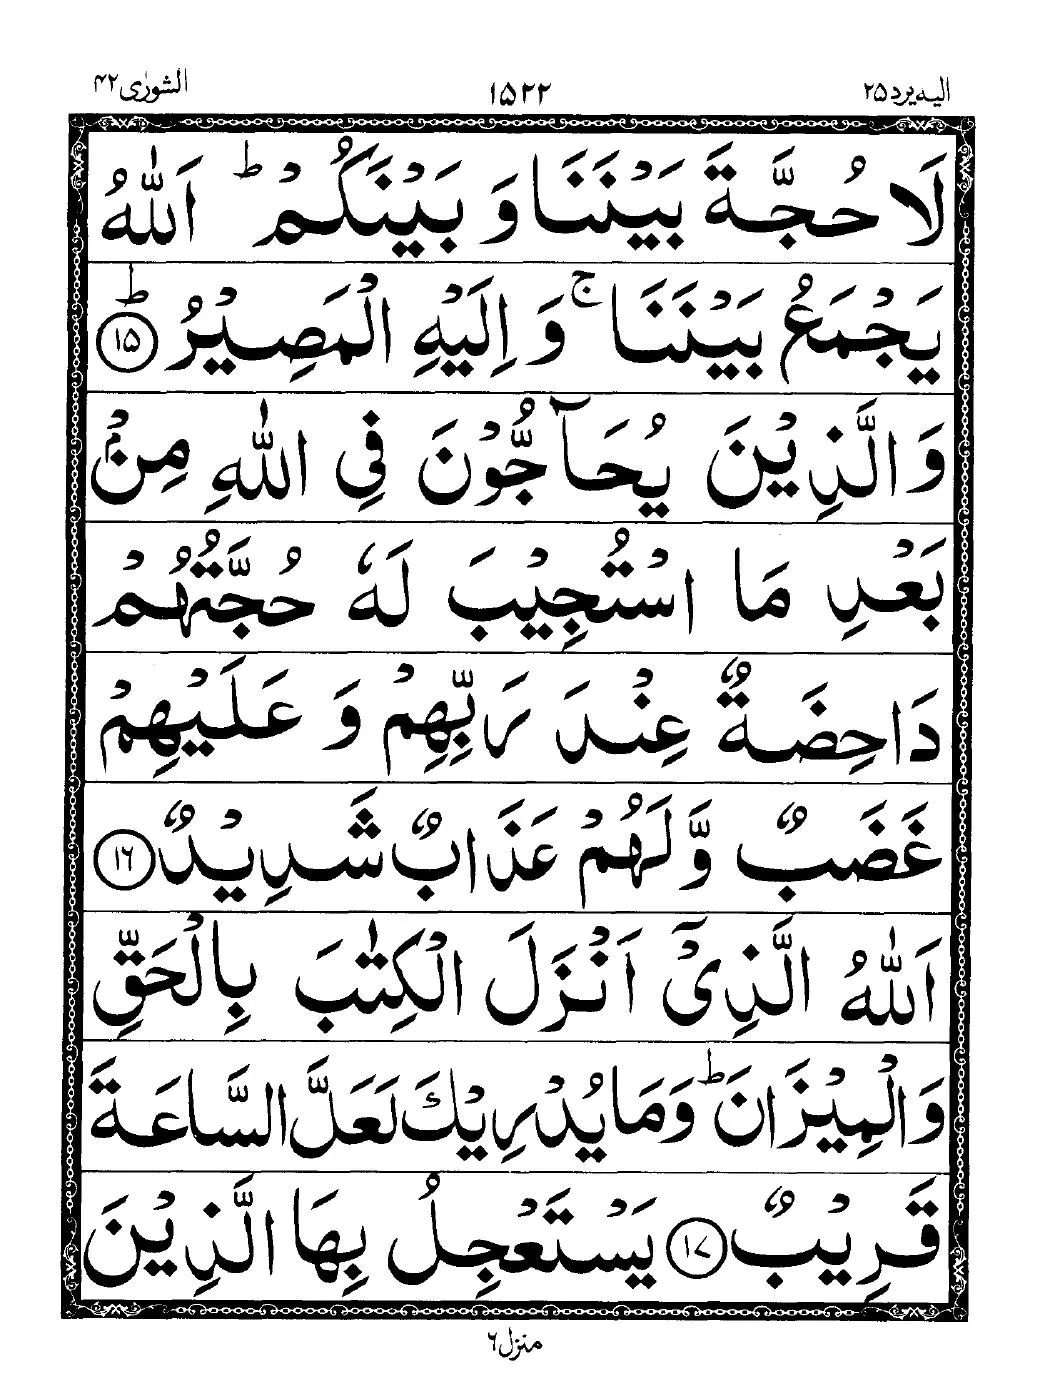 الیه یرد ۲۵ ۱۵۲۲ الشورٰی ۴۲
لَا حُجَّةَ بَيْنَنَا وَ بَيْنَكُمْ ؕ اَللّٰهُ
يَجْمَعُ بَيْنَنَا ۚ وَ اِلَيْهِ الْمَصِيْرُ ؕ ۱۵
وَالَّذِيْنَ يُحَآجُّوْنَ فِي اللّٰهِ مِنْۢ
بَعْدِ مَا اسْتُجِيْبَ لَهٗ حُجَّتُهُمْ
دَاحِضَةٌ عِنْدَ رَبِّهِمْ وَ عَلَيْهِمْ
غَضَبٌ وَّ لَهُمْ عَذَابٌ شَدِيْدٌ ۱۶
اَللّٰهُ الَّذِيْٓ اَنْزَلَ الْكِتٰبَ بِالْحَقِّ
وَالْمِيْزَانَ ؕ وَمَا يُدْرِيْكَ لَعَلَّ السَّاعَةَ
قَرِيْبٌ ۱۷ يَسْتَعْجِلُ بِهَا الَّذِيْنَ
منزل ۶